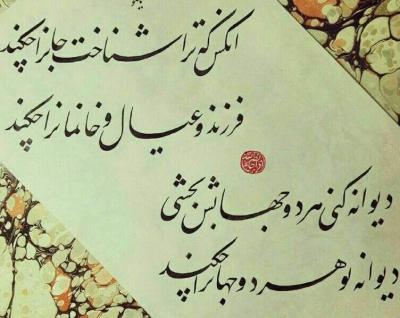 انکس که ترا شناخت جانرا چکند
فرزند و عیال و خانمانرا چکند
دیوانه کنی هر دو جهانش بخشی
دیوانه تو هر دو جهانرا چکند